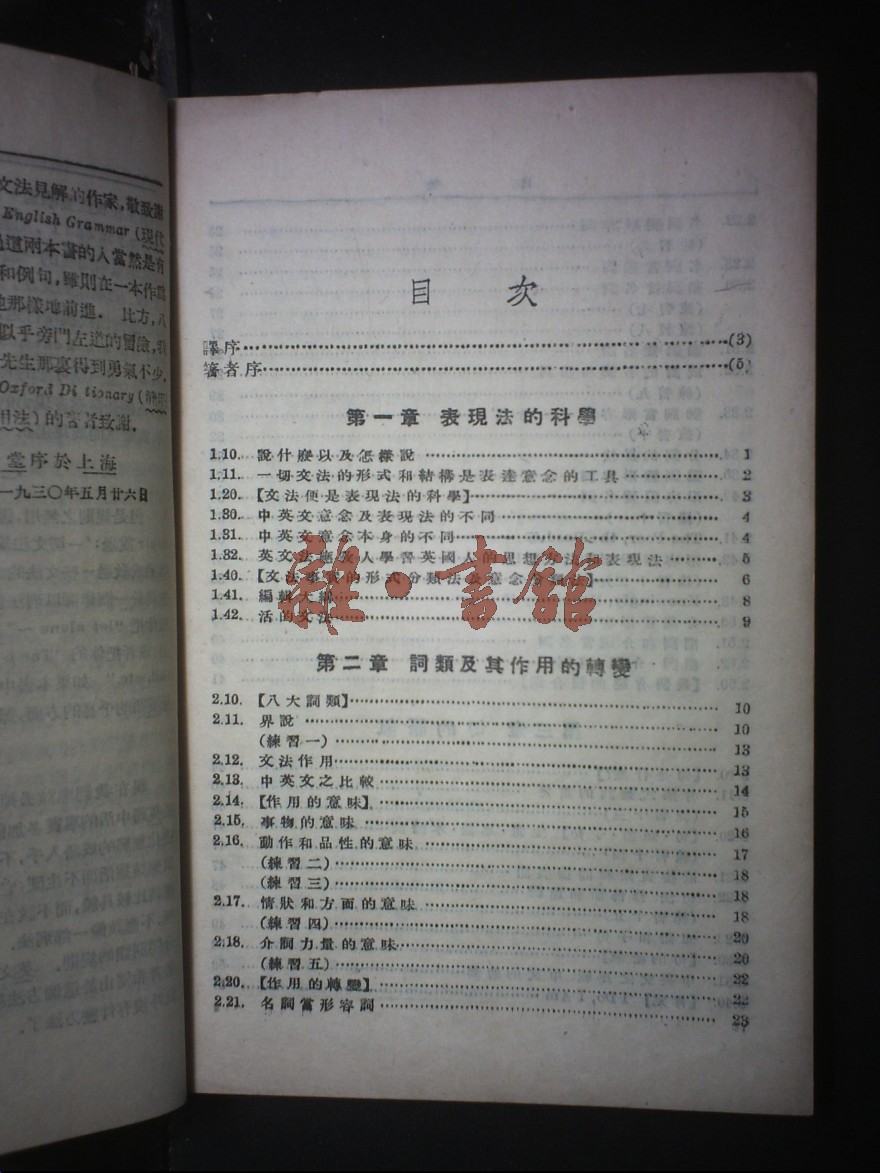 文法見解的作家,敬致謝
English Grammar (現代
這兩本書的人當然是有
和例句,雖則在一本作爲
那樣地前進. 比方,八
似乎旁門左道的冒險,我
先生那裏得到勇氣不少.
Oxford Di tionary (
用法)的著者致謝.
堂序於上海
一九三〇年五月廿六日
目 次
譯序……(3)
著者序……(5)
第一章 表現法的科學
1.10. 說什麼以及怎樣說……1
1.11. 一切文法的形式和結構是表達意念的工具……2
1.20. 【文法便是表現法的科學】……3
1.30. 中英文意念及表現法的不同……4
1.31. 中英文意念本身的不同……4
1.32. 英文法應教人學習英國人的思想方法和表現法……5
1.40. 【文法事實的形式分類法及意念分類法】……6
1.41. 編輯大綱……8
1.42. 活的文法……9
雜·書館
第二章 詞類及其作用的轉變
2.10. 【八大詞類】……10
2.11. 界說……10
(練習一)……13
2.12. 文法作用……13
2.13. 中英文之比較……14
2.14. 【作用的意味】……15
2.15. 事物的意味……16
2.16. 動作和品性的意味……17
(練習二)……18
(練習三)……18
2.17. 情狀和方面的意味……18
(練習四)……20
2.18. 介詞力量的意味……20
(練習五)……22
2.20. 【作用的轉變】……22
2.21. 名詞當形容詞……23